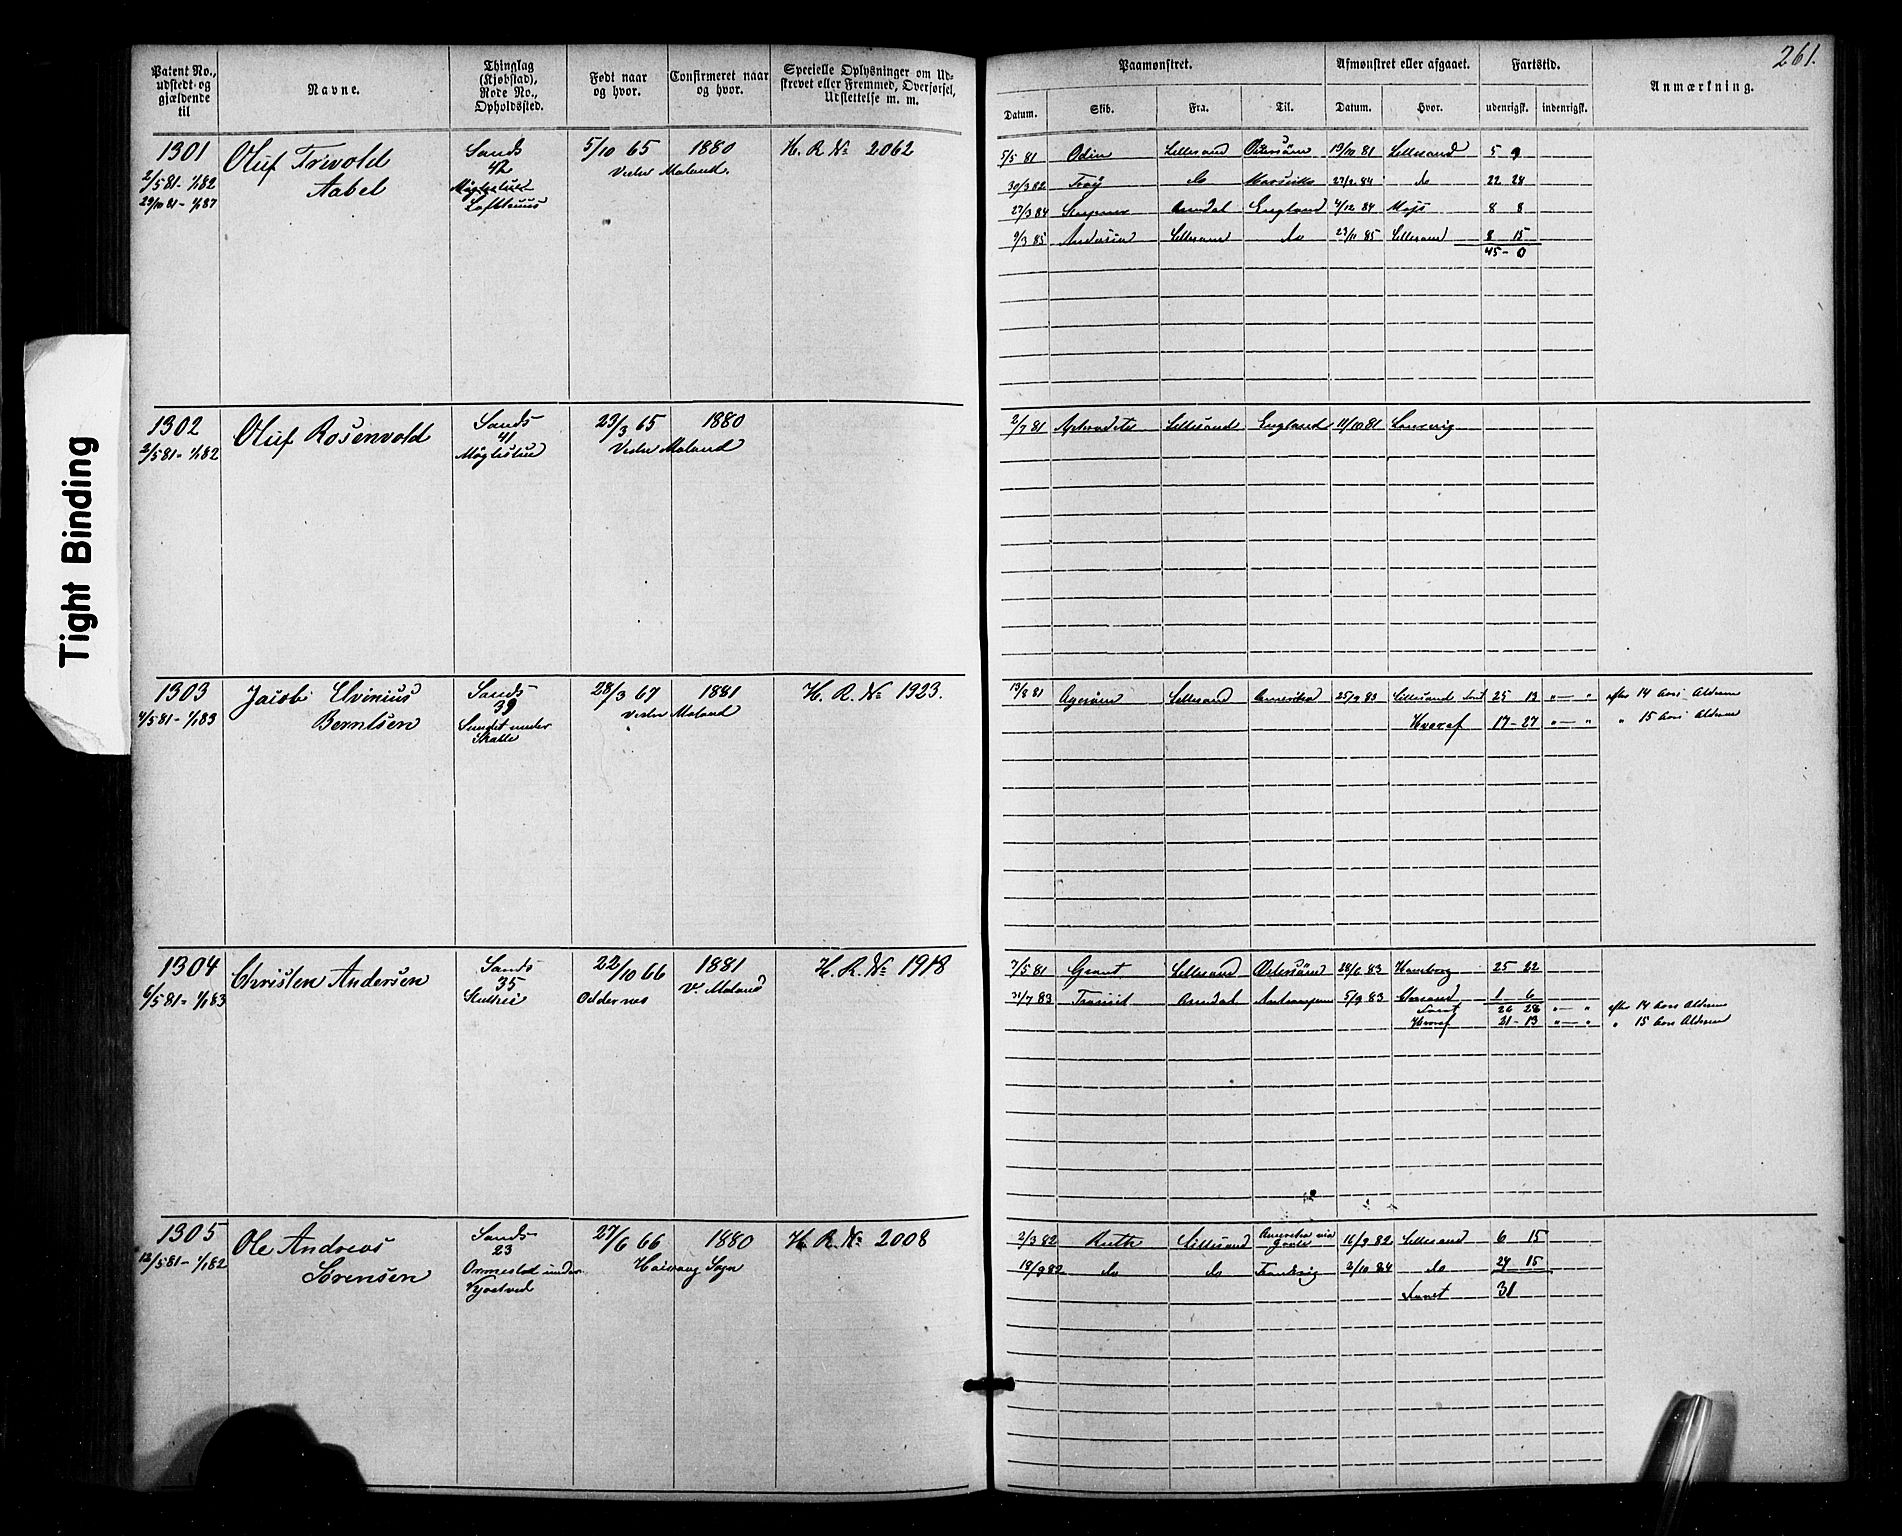 261.
Patent No., udstedt og gjældende til
Navne.
Thinglag (Kjøbstad), Rode No., Opholdssted.
Født naar og hvor.
Confirmeret naar og hvor.
Specielle Oplysninger om Udskrevet eller Fremmed, Overførsel, Udslettelse m. m.
Paamønstret.
Afmønstret eller afgaaet.
Fartstid.
Anmærkning.
Datum. Skib. Fra. Til. Datum. Hvor. udenrigsk. indenrigsk.
1301 Oluf Trivold Sands 5/10 65 1880 H. R. No 2062
2/5 81 - 1/1 82 Aabel 42 Vestre Moland.
29/10 81 - 1/1 87
5/5 81 Odin Lillesand Østersøen 19/10 81 Lillesand 5 9
30/3 82 Troy do 27/2 84 do 22 28
27/3 84 Arendal England 4/12 84 8 8
9/3 85 Lillesand do 23/11 85 Lillesand 8 15
45 - 0
1302 Oluf Rosenvold Sands 23/3 65 1880
2/5 81 - 1/1 82 41 Vestre Moland
Møglestue
2/7 81 Lillesand England 11/10 81
1303 Jacob Elvinius Sands 28/3 67 1881 H. R. No 1923.
4/5 81 - 1/1 83 Berntsen 39 Vestre Moland
Sundet under
19/8 81 Lillesand Amerika 25/9 83 Lillesand 25 13 " — " efter 14 Aars Alderen
Hvoraf 17 - 27 " — " " 15 Aars Alderen
1304 Christen Andersen Sands 22/10 66 1881 H. R. No 1918
6/5 81 - 1/1 83 35 Oddernes V. Moland
7/5 81 Grant Lillesand Østersøen 28/6 83 Hamborg 25 22
31/7 83 Arendal 5/9 83 1 6
26 28 " — " efter 14 Aars Alderen
Hvoraf 21 - 13 " — " " 15 Aars Alderen
1305 Ole Andreas Sands 27/6 66 1880 H. R. No 2008
12/5 81 - 1/1 82 Sørensen 23 Sogn
under
2/3 82 Ruth Lillesand Amerika via 16/9 82 Lillesand 6 15
18/9 82 do do 2/10 84 do 24 15
31
Tight Binding